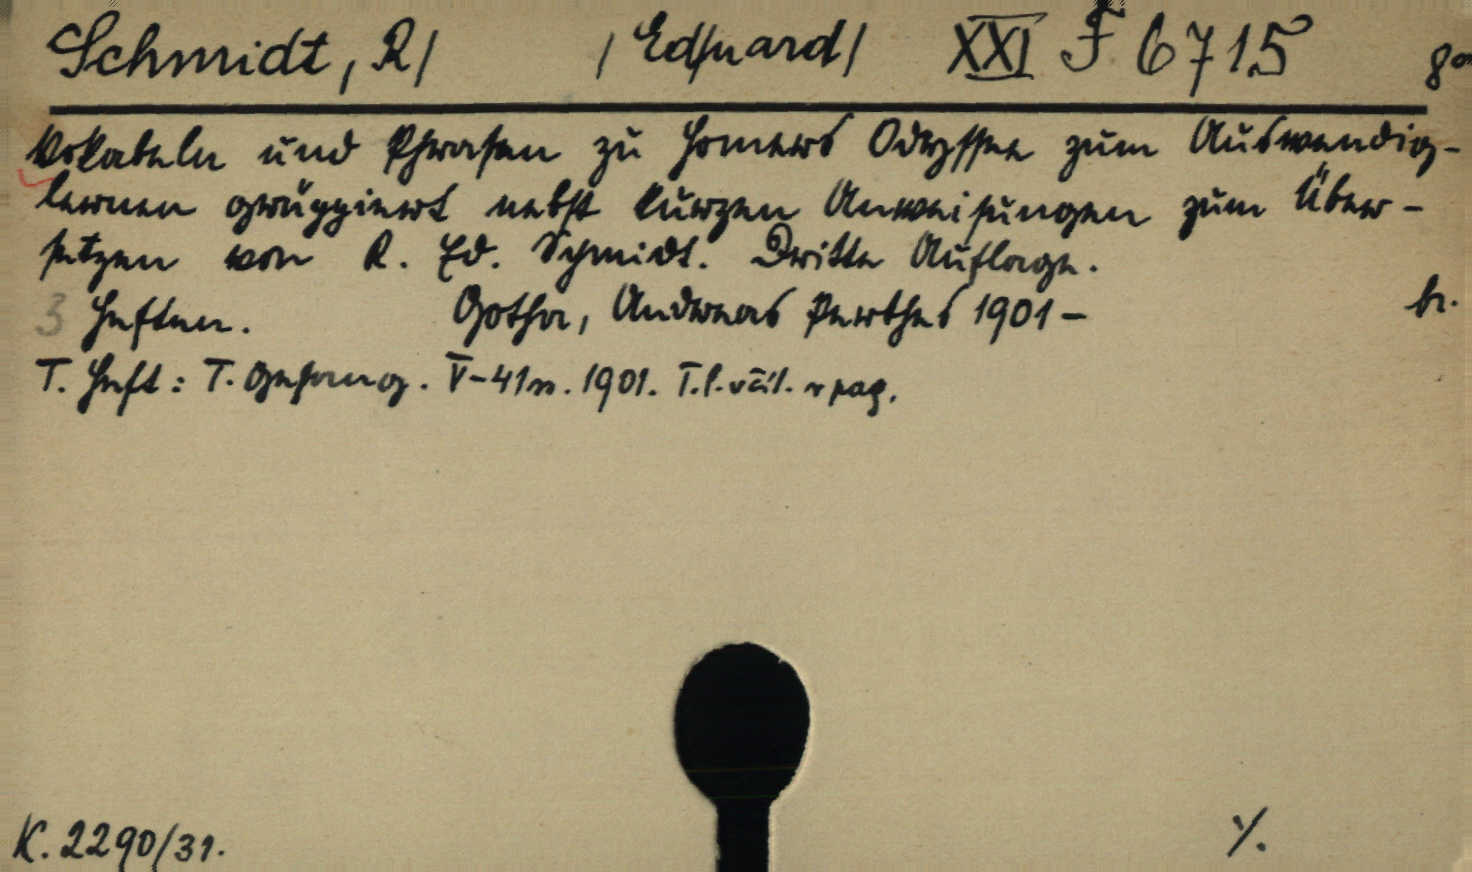 Schmidt, R/ /Ed/uard/ XXI F 6715 8°
Vokabeln und Phrasen zu Homers Odyssee zum Auswendig-
lernen gruppiert nebst kurzen Anweisungen zum Über-
setzen von R. Ed. Schmidt. Dritte Auflage.
3 Heften. Gotha, Andreas Perthes 1901 – br.
I. Heft: I. Gesang. V-41 s. 1901. T.l. v pag.
K. 2290/31. ·/.